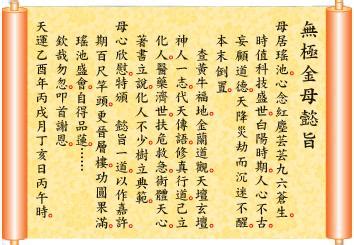 無極金母懿旨
母居瑤池。心念紅塵芸芸九六蒼生。
時值科技盛世白陽時期。人心不古
妄顧道德。天降災劫而沉迷不醒。
本末倒置。
查黃牛福地金蘭道觀。天壇玄壇。
神人一志。代天傳語。修真行道。己立
化人。醫藥濟世。扶危救急。術體天心。
著書立說。化人不少。樹立典範。
母心欣慰。特頒 懿旨一道。以作嘉許。
期百尺竿頭。更晉層樓。功圓果滿
瑤池盛會。自得品蓮。……
欽哉勿忽。叩首謝恩。
天運乙酉年丙戌月丁亥日丙午時。